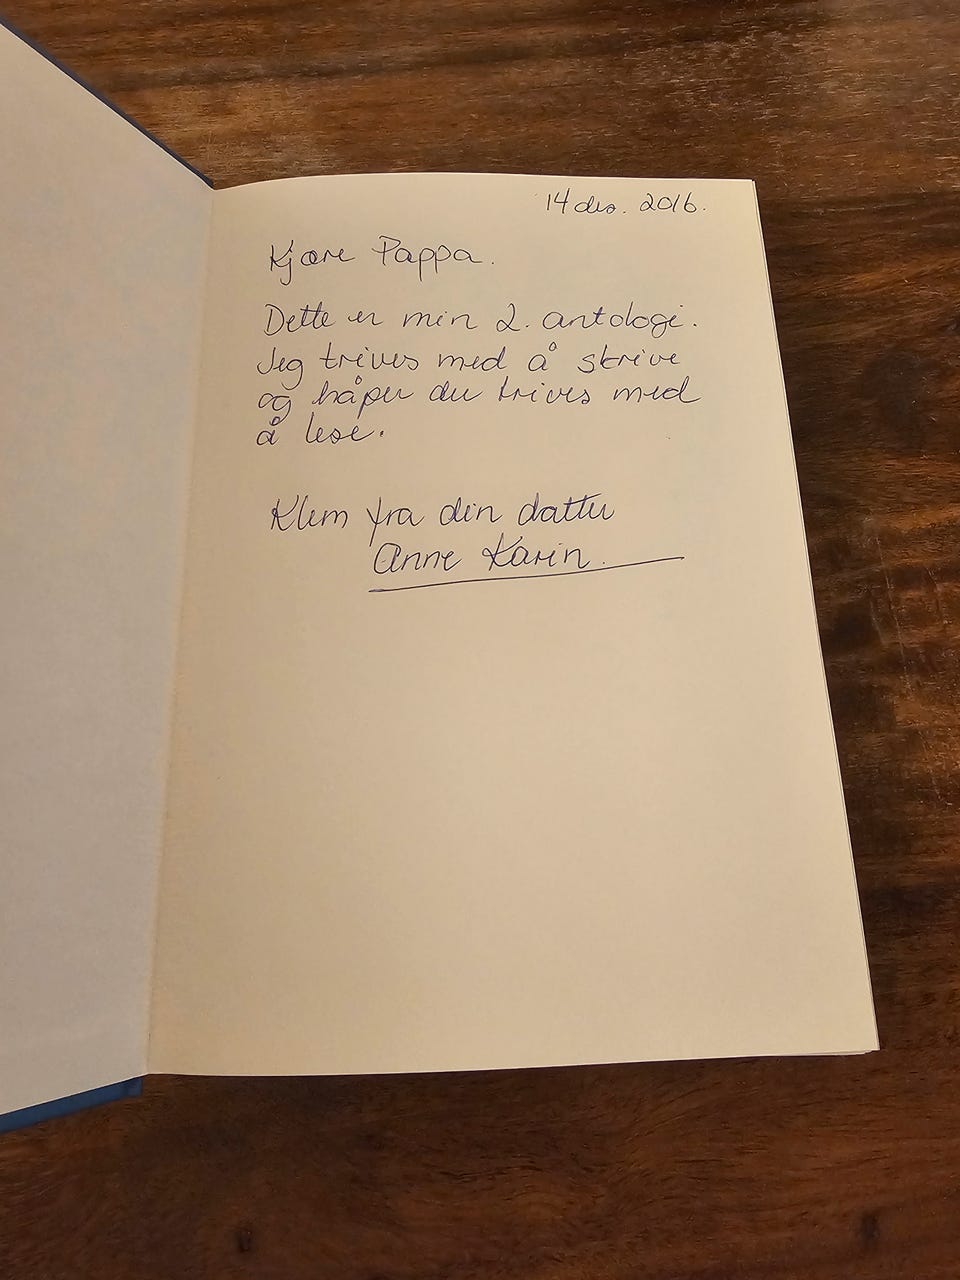 14 des. 2016.
Kjære Pappa.
Dette er min 2. antologi.
Jeg trives med å skrive
og håper du trives med
å lese.
Klem fra din datter
Anne Karin.